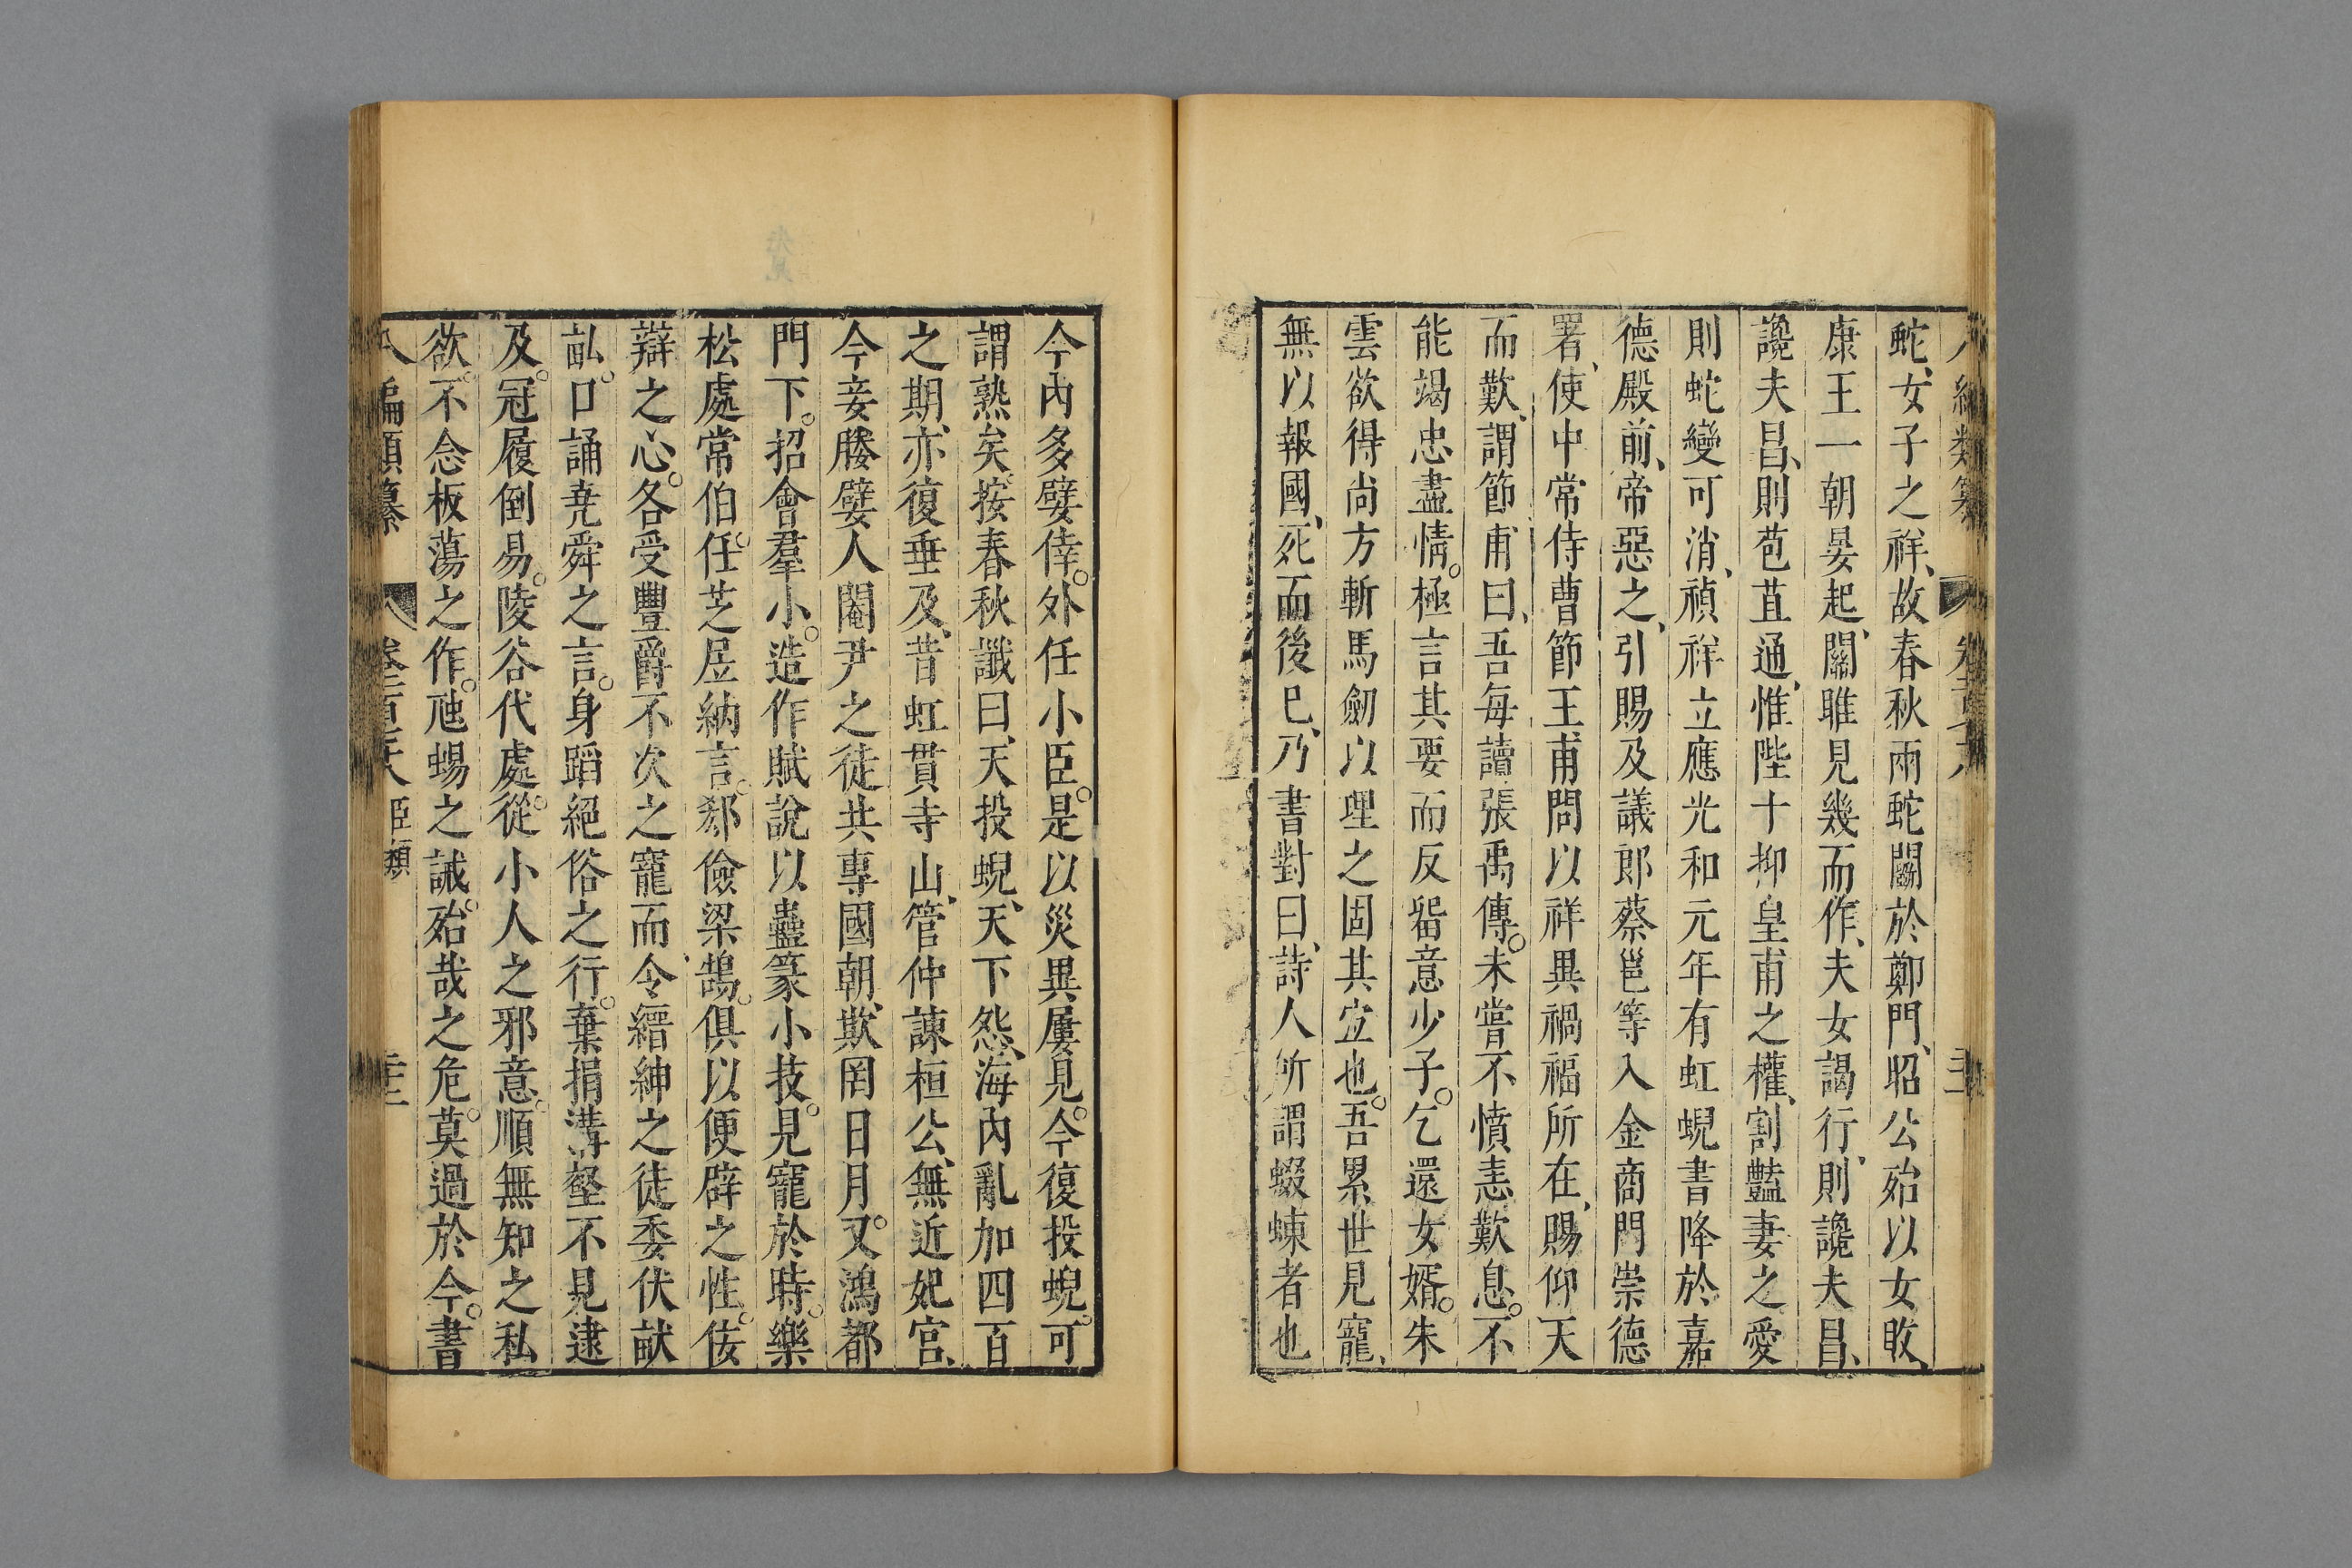 蛇、女子之祥、故春秋兩蛇鬬於鄭門、昭公殆以女敗、
康王一朝晏起、關雎見幾而作、夫女謁行、則讒夫昌、
讒夫昌、則苞苴通、惟陛十抑皇甫之權、割豔妻之愛
則蛇變可消、禎祥立應光和元年有虹蜺書降於嘉
德殿前、帝惡之、引賜及議郎蔡邕等入金商門崇德
署、使中常侍曹節王甫問以祥異禍福所在、賜仰天
而歎、謂節甫曰、吾每讀張禹傳。未嘗不憤恚歎息。不
能竭忠盡情。極言其要而反畱意少子。乞還女婿。朱
雲欲得尚方斬馬劒以理之固其宜也。吾累世見寵、
無以報國、死而後已、乃書對曰、詩人所謂蝃蝀者也
今內多嬖倖。外任小臣。是以災異屢見。今復投蜺。可
謂熟矣。按春秋讖曰、天投蜺、天下怨、海內亂加四百
之期、亦復垂及、昔虹貫寺山、管仲諫桓公、無近妃宫、
今妾媵嬖人閹尹之徒共專國朝、欺罔日月。又鴻都
門下。招會羣小。造作賦說以蠱篆小技。見寵於時。樂
松處常伯。任芝居納言。郄儉梁鵠。俱以便辟之性。佞
辯之心。各受豐爵不次之寵而令縉紳之徒委伏畎
畝。口誦堯舜之言。身蹈絕俗之行。棄捐溝壑不見逮
及。冠履倒易。陵谷代處。從小人之邪意。順無知之私
欲。不念板蕩之作。虺蜴之誡。殆哉之危。莫過於今。書
八編類纂 卷二百三十六 臣類